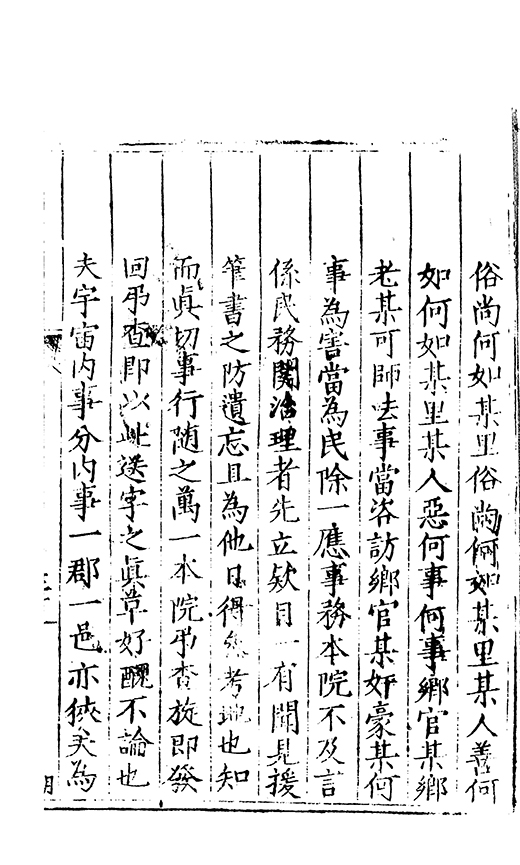 俗尚何如某里俗尚何如某里某人善何
如何如某里某人惡何事何事鄉官某鄉
老某可師某事當咨訪鄉官某奸豪某何
事為害當為民除一應事務本院不及言
係民務関治理者先立欵目一有聞見援
筆書之防遺忘且為他日得參考地也知
而真切事行隨之萬一本院弔查旋即發
回弔查即以此送字之真草好醜不論也
夫宇宙內事分內事一郡一邑亦狹矣為